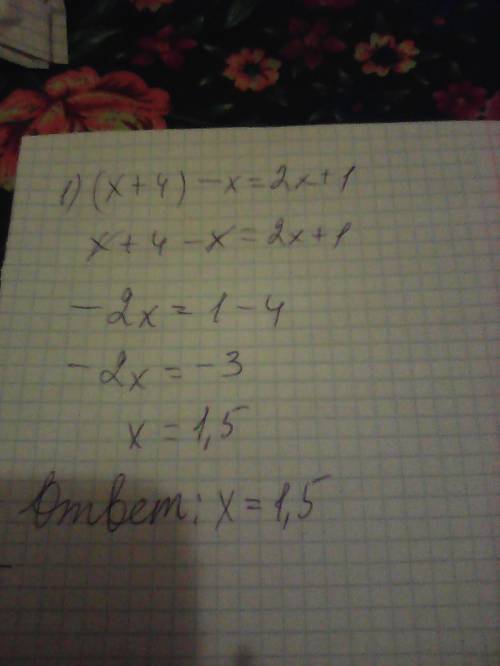 1) (x+4) -x=2x+1
x+4-x=2x+1
-2x=1-4
-2x=-3
x=1,5
Ответ: x=1,5